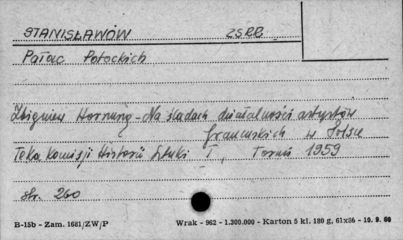 STANISŁAWÓW ZSRR
Pałac Potockich
Zbigniew Hornung - Na śladach działalności artystów
francuskich w Polsce
Teka Komisji Historii Sztuki I, Toruń 1959
str. 260
B-15b - Zam. 1681/ZW/P Wrak - 962 - 1.300.000 - Karton 5 kl. 180 g, 61x86 - 10. 9. 60